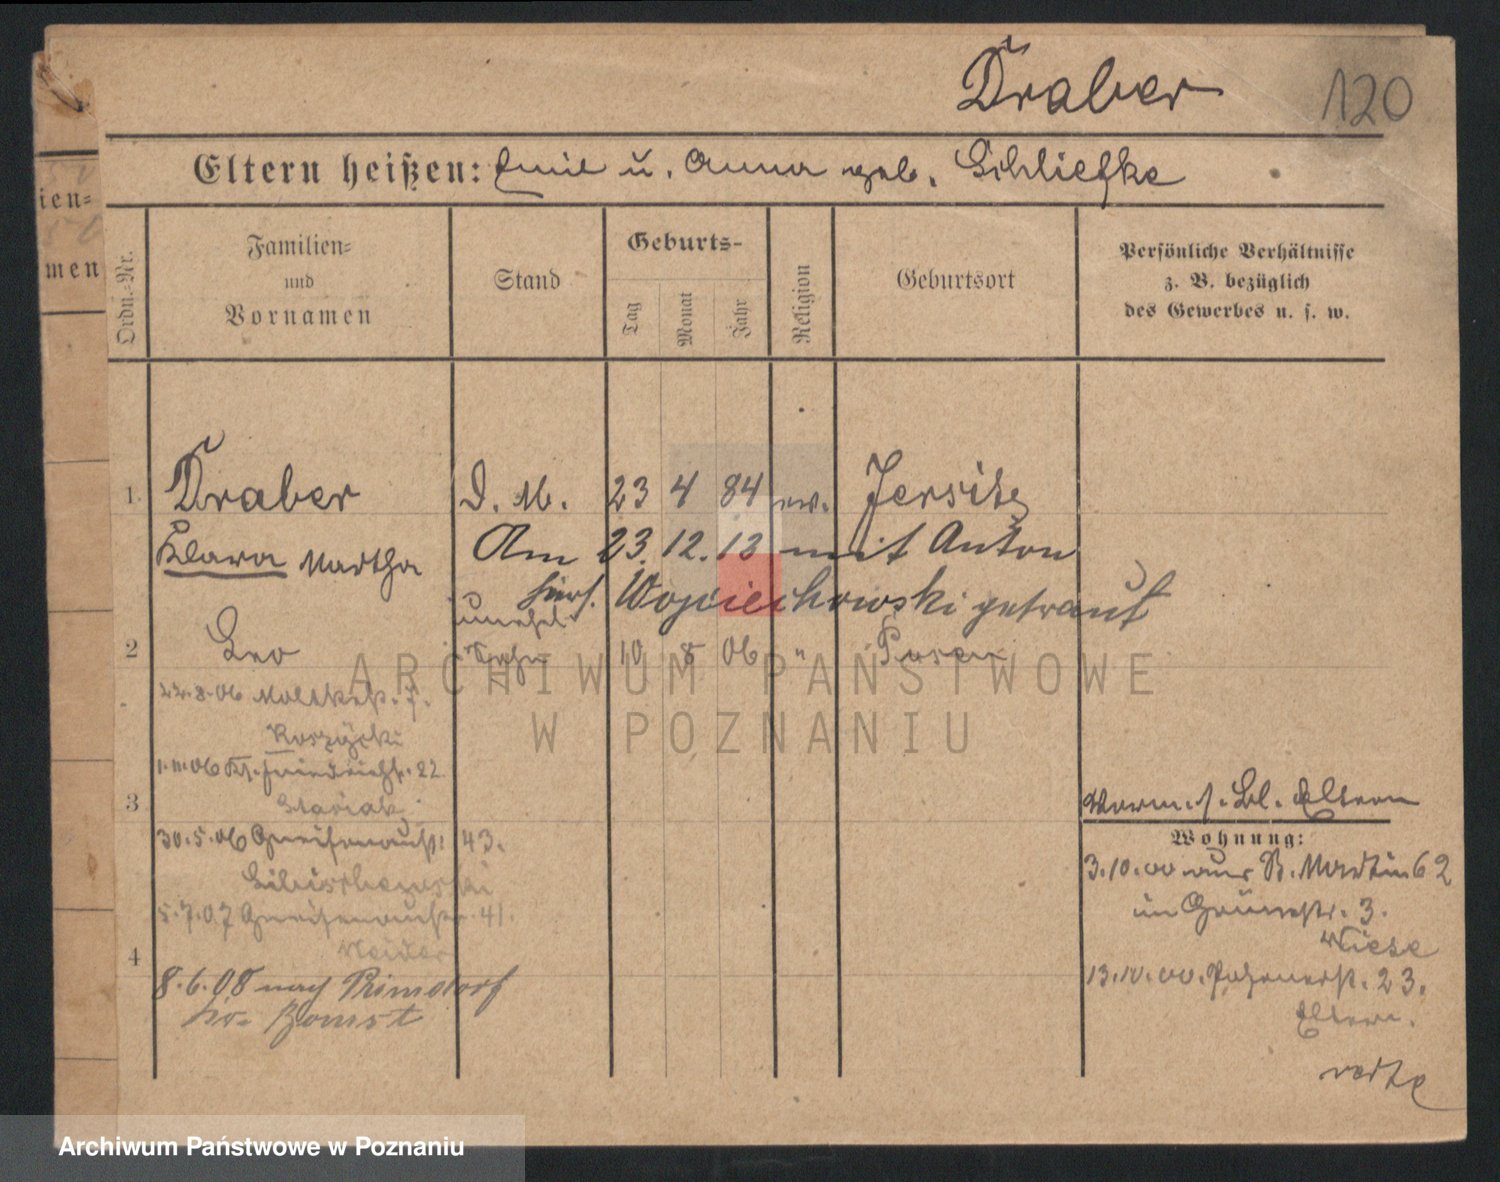 Draber 120
Eltern heißen: Emil u. Anna geb. Schliefke
ien=
men
Ordn.-Nr.
Familien=
und
Vornamen
Stand
Geburts--
Tag
Monat
Jahr
Religion
Geburtsort
Persönliche Verhältnisse
z. B. bezüglich
des Gewerbes u. s. w.
1. Draber D. M. 23 4 84 ev. Jersitz
Klara Martha Am 23.12.12 mit Anton
Wojciechowski getraut
unehel.
2 Leo Sohn 10 8 06 " Posen
22.8.06 Moltkestr. 7.
Koszycki
1.11.06 Kl. Friedrichstr. 22
3 Vorm. s. Bl. Eltern
30.5.06 Gneisenaustr. 43.
Wohnung:
3.10.00 aus St. Martin 62
5.7.07 Gneisenaustr. 41.
in Grünestr. 3.
Wiese
4
8.6.08 nach Primsdorf
13.10.00. 23.
Kr. Bomst
Eltern.
ARCHIWUM PAŃSTWOWE
W POZNANIU
Archiwum Państwowe w Poznaniu